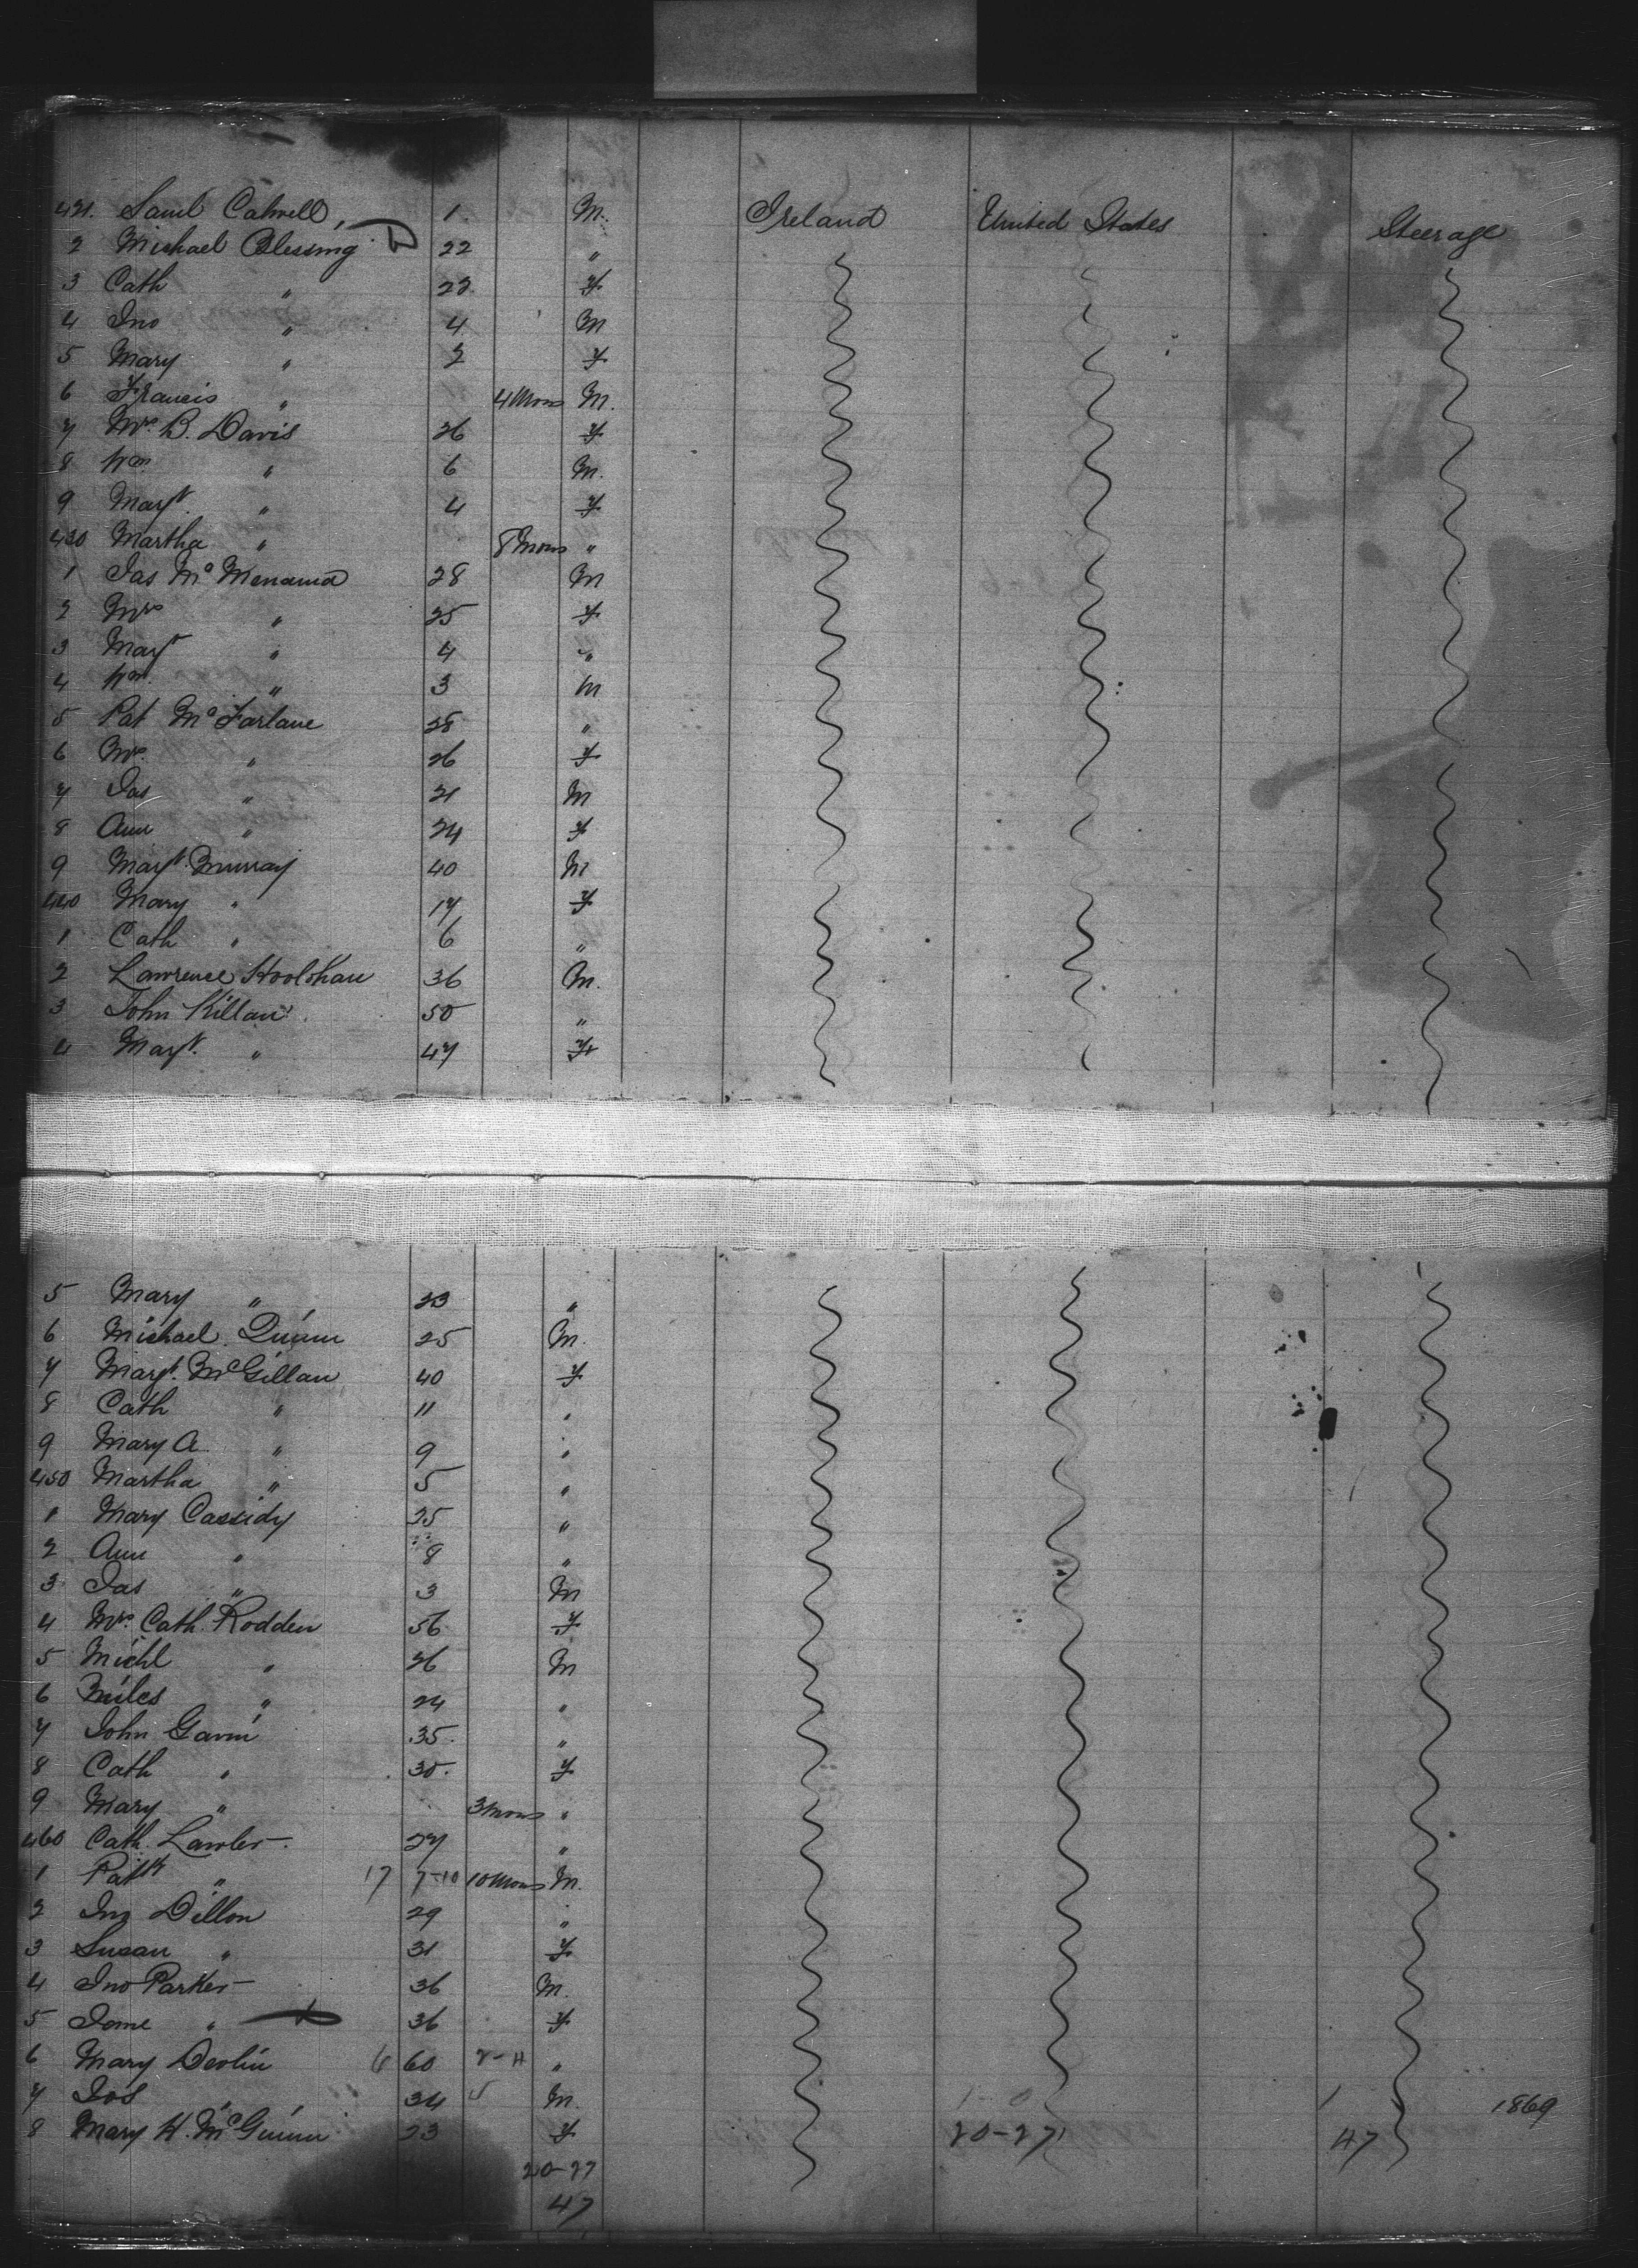 421. Saml Calwell, 1. M. Ireland United States Steerage
2 Michael Blessing 22 "
3 Cath " 22 F
4 Jno " 4 M
5 Mary " 2 F
6 Francis " 4 Mons M.
7 Mrs. B. Davis 26 F
8 Wm " 6 M.
9 Margt. " 4 F
430 Martha " 8 Mons "
1 Jas McMenama 28 M
2 Mrs " 25 F
3 Margt " 4 "
4 Wm. " 3 M
5 Pat McFarlane 28 "
6 Mrs. " 26 F
7 Jas " 21 M
8 Ann " 24 F
9 Margt. Murray 40 M
440 Mary " 17 F
1 Cath " 6 "
2 Lawrence Hoolohan 36 M.
3 John Killan 50 "
4 Margt. " 47 F
5 Mary " 23 "
6 Michael Quinn 25 M.
7 Margt. McGillan 40 F
8 Cath " 11 "
9 Mary A " 9 "
450 Martha " 5 "
1 Mary Cassidy 25 "
2 Ann " 8 "
3 Jas " 3 M
4 Mrs. Cath. Rodden 56 F
5 Michl " 26 M
6 Miles " 24 "
7 John Gavin 35. "
8 Cath " 30. F
9 Mary " 3 Mons "
460 Cath. Lawler 27 "
1 Patk " 17 7-10 10 Mons M.
2 Jno Dillon 29 "
3 Susan " 31 F
4 Jno Parker 36 M.
5 Jane " 36 F
6 Mary Devlin 6 60 2-11 "
7 Jos " 34 5 M. 1-0 1 1869
8 Mary H. McGuinn 23 F 20-27 47
20-27
47